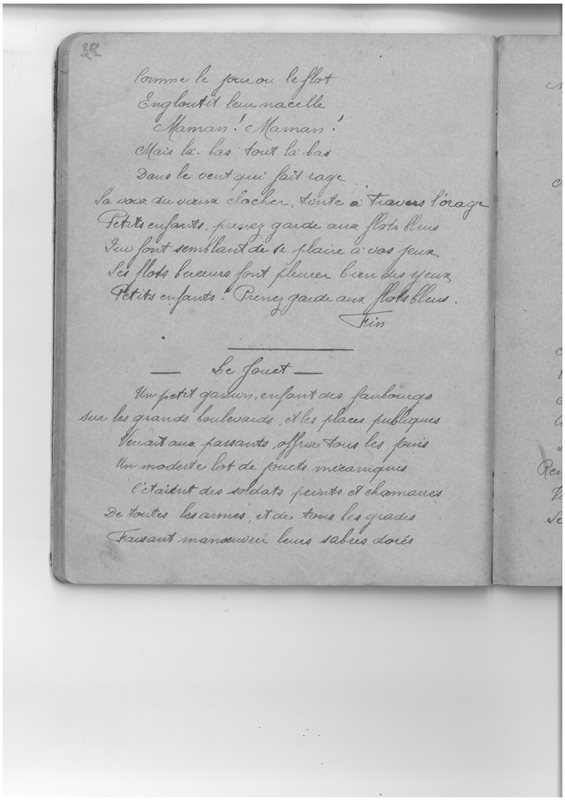 32
Comme le jour ou le flot
Engloutit leur nacelle
Maman! Maman!
Mais là-bas tout là-bas
Dans le vent qui fait rage
La voix du vieux clocher, tinte à travers l'orage
Petits enfants, prenez garde aux flots bleus
Qui font semblant de se plaire à vos jeux
Les flots berceurs font pleurer bien des yeux
Petits enfants! Prenez garde aux flots bleus.
Fin
— Le Jouet —
Un petit gamin, enfant des faubourgs
Sur les grands boulevards, et les places publiques
Venait aux passants, offrir tous les jours
Un modeste lot de jouets mécaniques
C'étaient des soldats peints et chamarrés
De toutes les armes, et de tous les grades
Faisant manœuvrer leurs sabres dorés